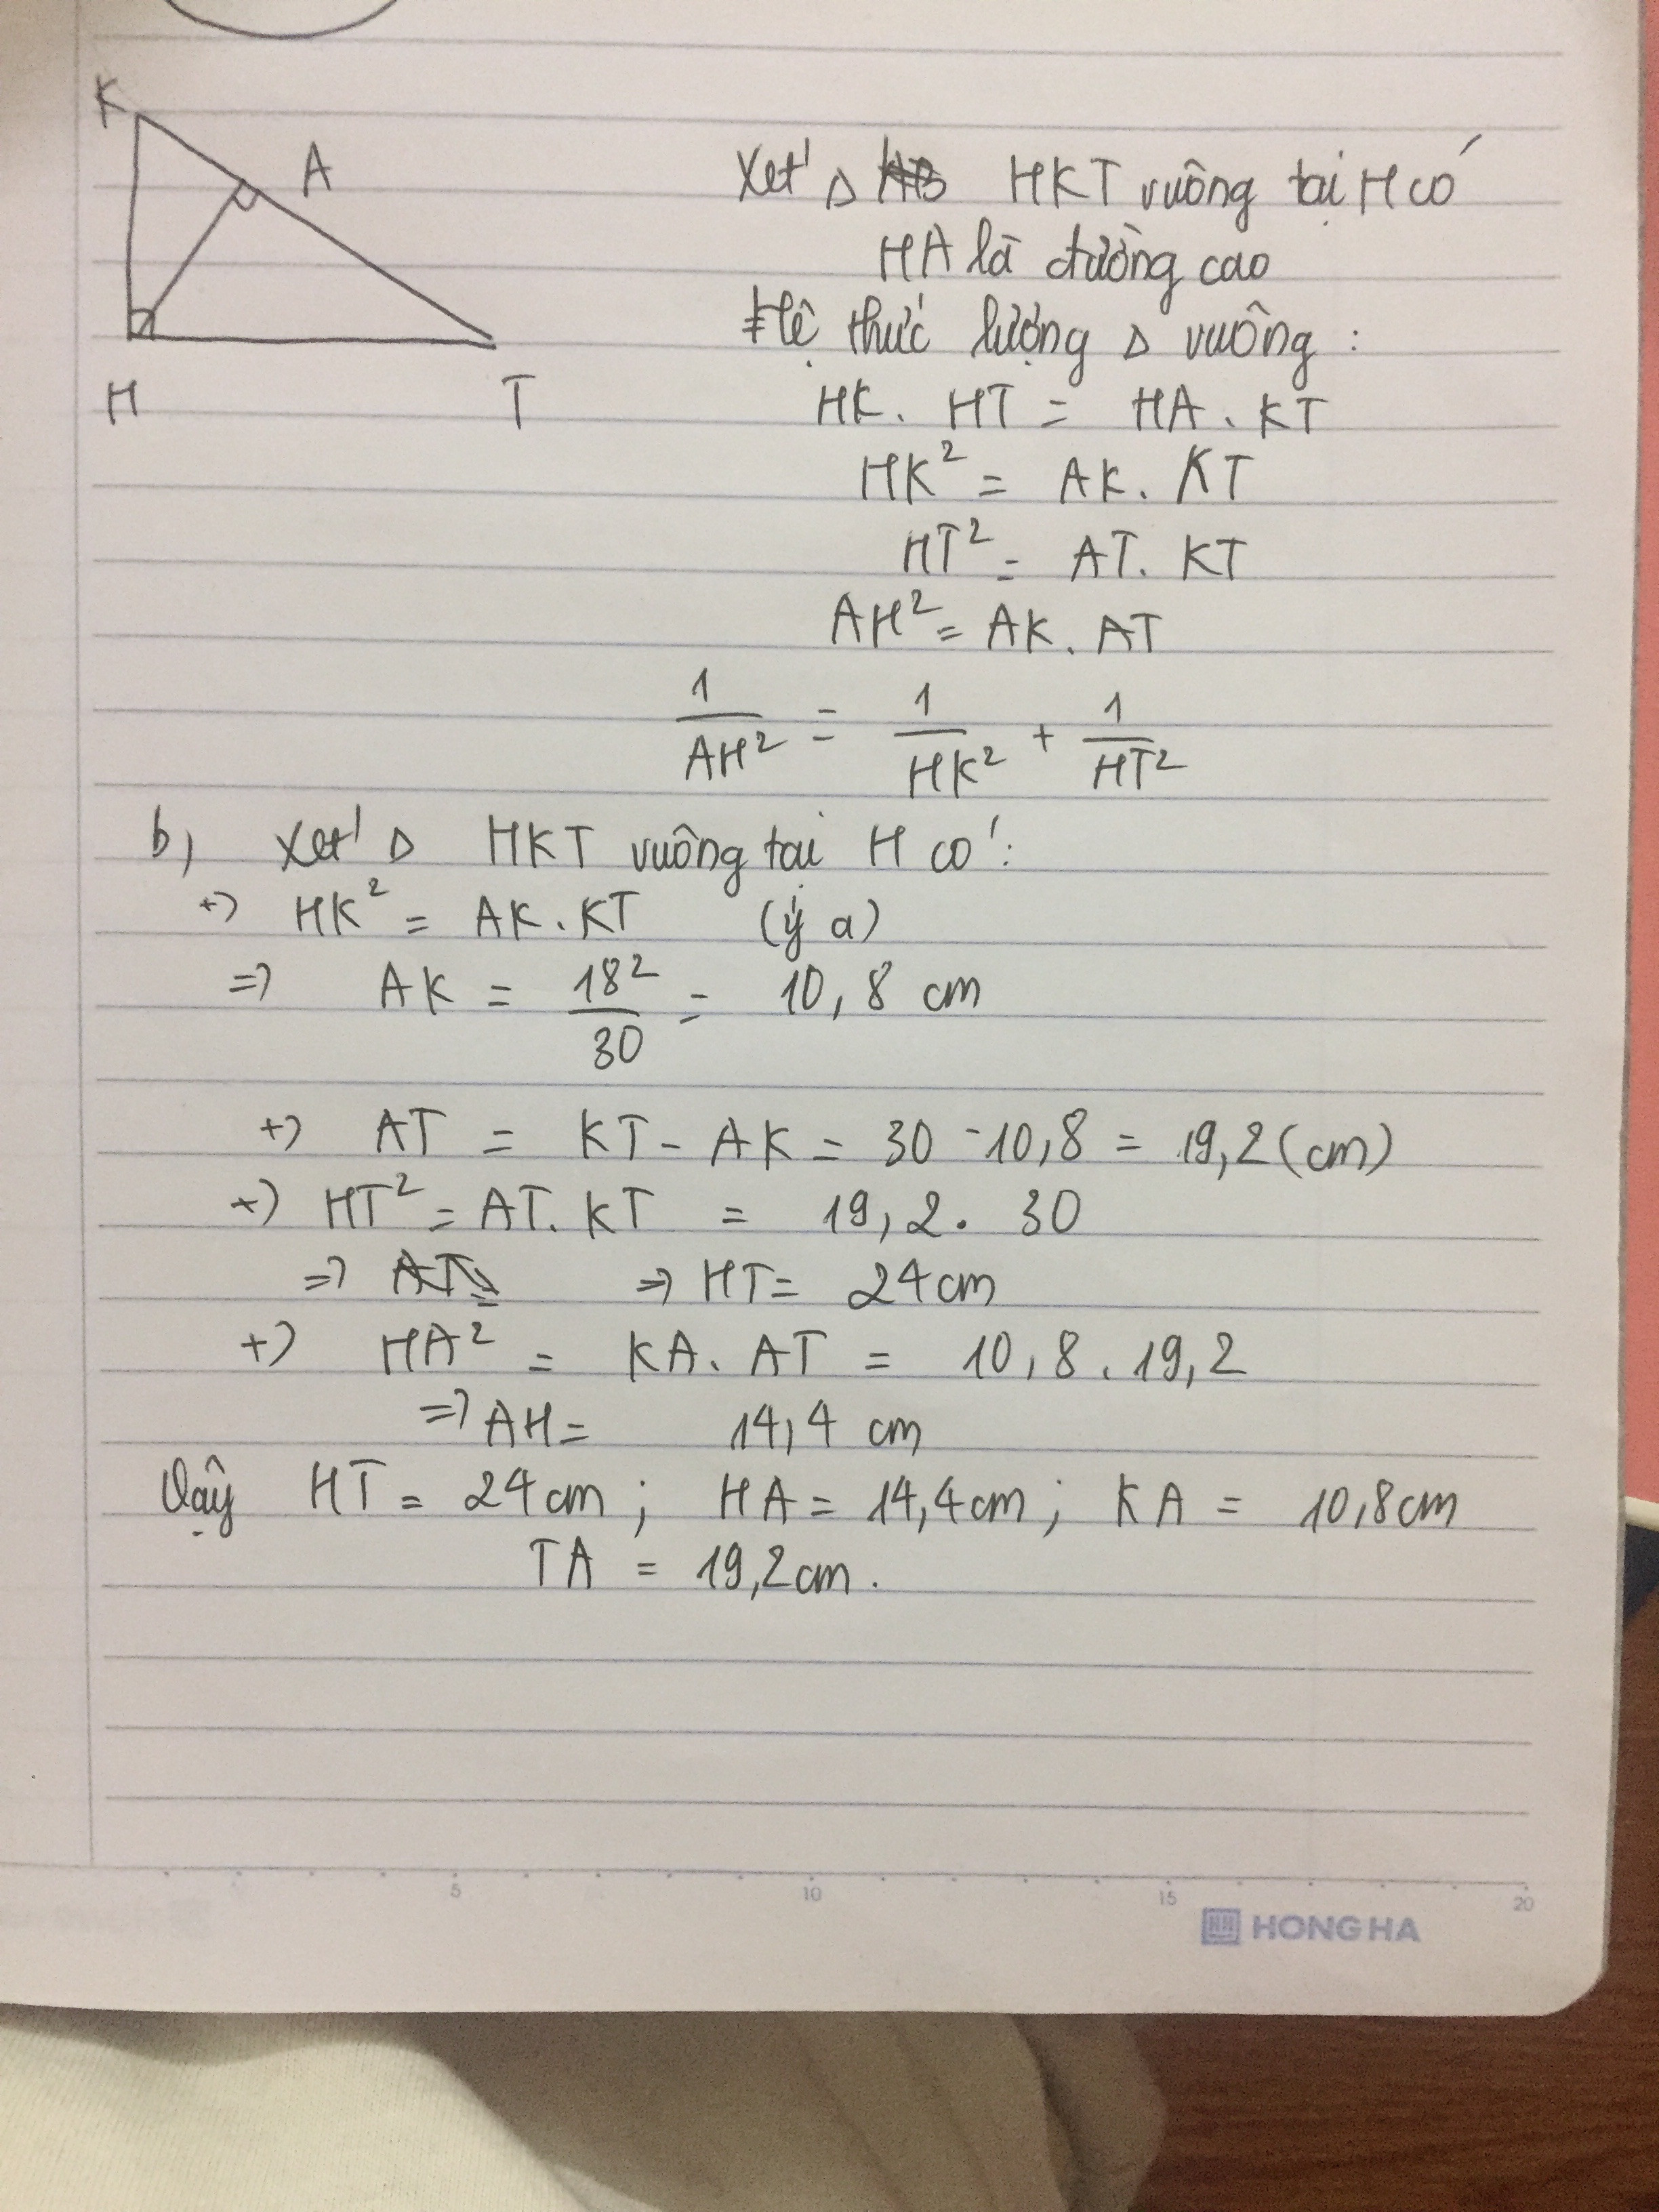 K
A
H
T
Xét Δ HKT vuông tại H có
HA là đường cao
Hệ thức lượng Δ vuông :
HK . HT = HA . KT
HK² = AK . KT
HT² = AT . KT
AH² = AK . AT
1/AH² = 1/HK² + 1/HT²
b, Xét Δ HKT vuông tại H có :
+) HK² = AK . KT (ý a)
=> AK = 18²/30 = 10,8 cm
+) AT = KT - AK = 30 - 10,8 = 19,2 (cm)
+) HT² = AT . KT = 19,2 . 30
=> => HT = 24cm
+) HA² = KA . AT = 10,8 . 19,2
=> AH = 14,4 cm
Vậy HT = 24cm ; HA = 14,4cm ; KA = 10,8cm
TA = 19,2cm .
5 10 15 20
HONG HA